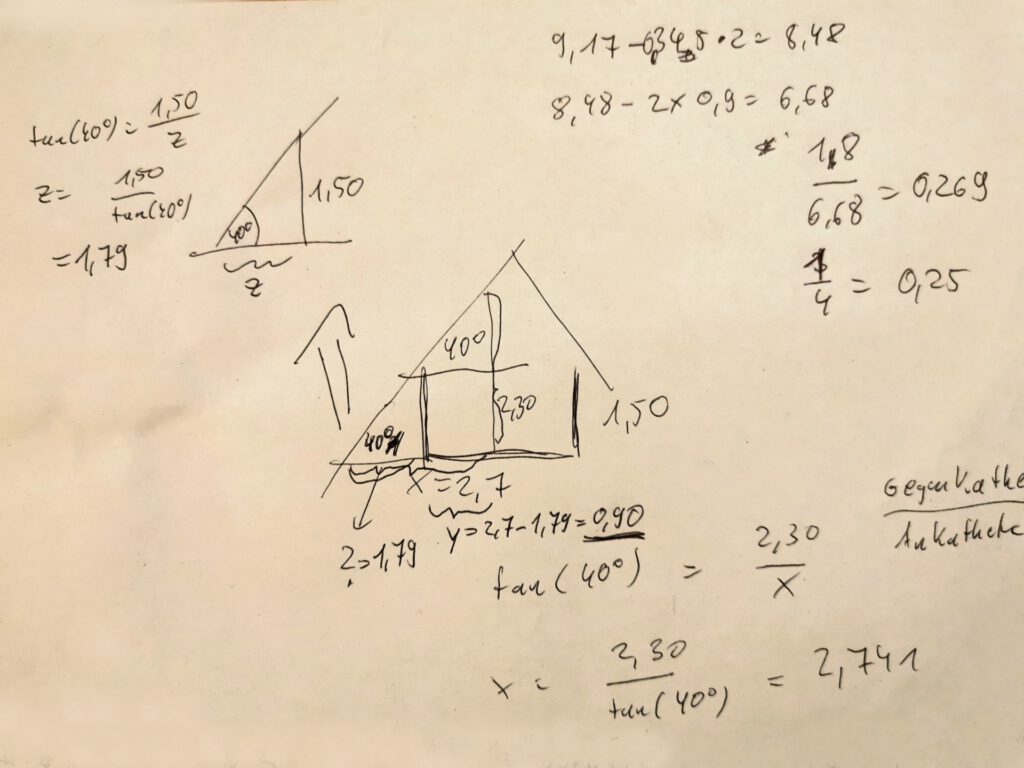 9,17 - 0,345 · 2 = 8,48
8,48 - 2 x 0,9 = 6,68
1,8
6,68
= 0,269
1
4
= 0,25
tan(40°) = 1,50
z
z = 1,50
tan(40°)
= 1,79
40°
1,50
z
40°
2,30
1,50
40°
x = 2,7
y = 2,7 - 1,79 = 0,90
z = 1,79
Gegenkathe
Ankathete
tan(40°) = 2,30
x
x = 2,30
tan(40°)
= 2,741